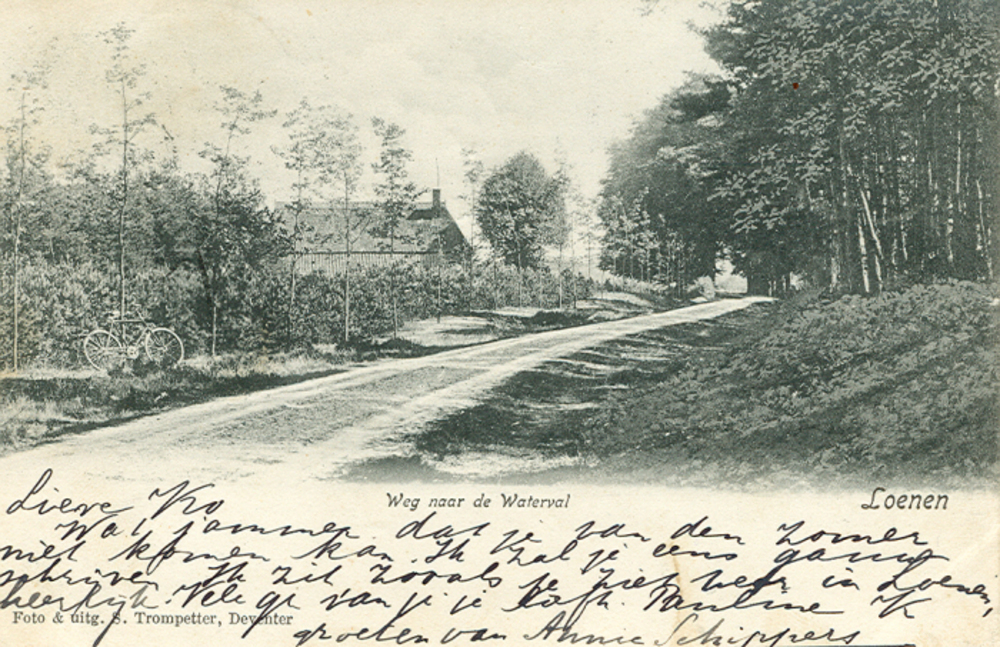 Weg naar de Waterval
Loenen
Lieve Ko
Wat jammer dat je van den zomer
niet komen kan. Ik zal je eens gauw
schrijven. Ik zit zooals je ziet weer in Loenen,
heerlijk. Vele gr van je je Pauline K
Foto & uitg. S. Trompetter, Deventer
groeten van Annie Schippers